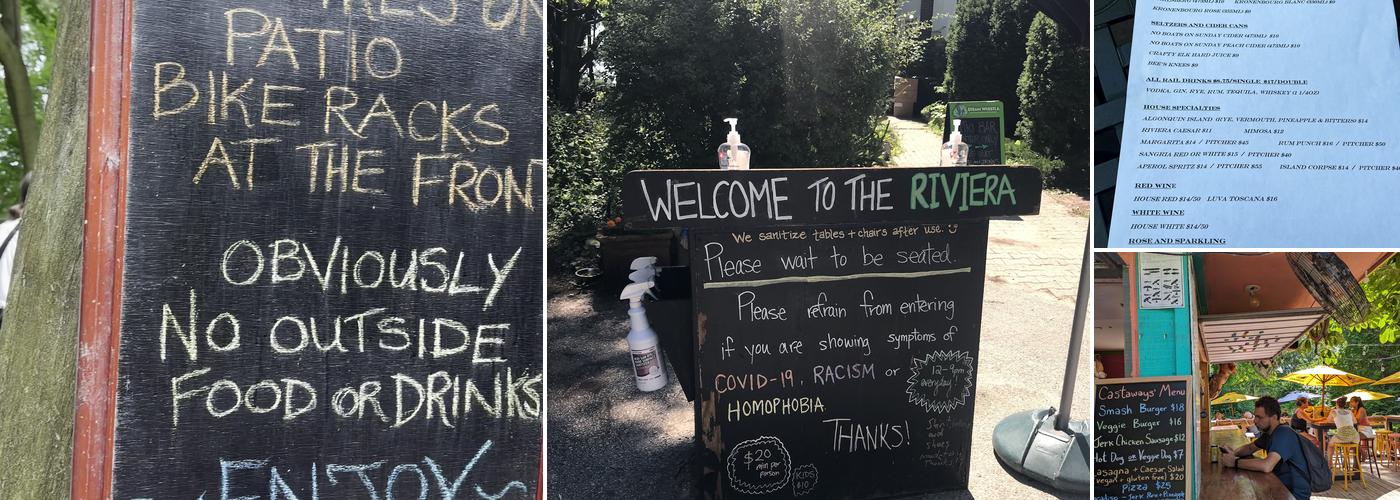 PATIO
BIKE RACKS
AT THE FRON
OBVIOUSLY
NO OUTSIDE
FOOD OR DRINKS
ENJOY
WELCOME TO THE RIVIERA
We sanitize tables + chairs after use.
Please wait to be seated.
Please refrain from entering
if you are showing symptoms of
COVID-19, RACISM or
HOMOPHOBIA.
THANKS!
12-9pm
everyday!
$20
min per
person
KIDS
$10
STEAM WHISTLE
BAR
KRONENBOURG BLANC (330ML) $9
KRONENBOURG ROSE (355ML) $9
SELTZERS AND CIDER CANS
NO BOATS ON SUNDAY CIDER (473ML) $10
NO BOATS ON SUNDAY PEACH CIDER (473ML) $10
CRAFTY ELK HARD JUICE $9
BEE'S KNEES $9
ALL RAIL DRINKS $8.75/SINGLE $17/DOUBLE
VODKA, GIN, RYE, RUM, TEQUILA, WHISKEY (1 1/4OZ)
HOUSE SPECIALTIES
ALGONQUIN ISLAND (RYE, VERMOUTH, PINEAPPLE & BITTERS) $14
RIVIERA CAESAR $11 MIMOSA $12
MARGARITA $14 / PITCHER $45 RUM PUNCH $16 / PITCHER $50
SANGRIA RED OR WHITE $15 / PITCHER $40
APEROL SPRITZ $14 / PITCHER $55 ISLAND CORPSE $14 / PITCHER
RED WINE
HOUSE RED $14/50 LUVA TOSCANA $16
WHITE WINE
HOUSE WHITE $14/50
ROSE AND SPARKLING
Castaways' Menu
Smash Burger $18
Veggie Burger $16
Jerk Chicken Sausage $12
Hot Dog or Veggie Dog $7
Lasagna + Caesar Salad
(vegan + gluten free) $20
Pizza $25